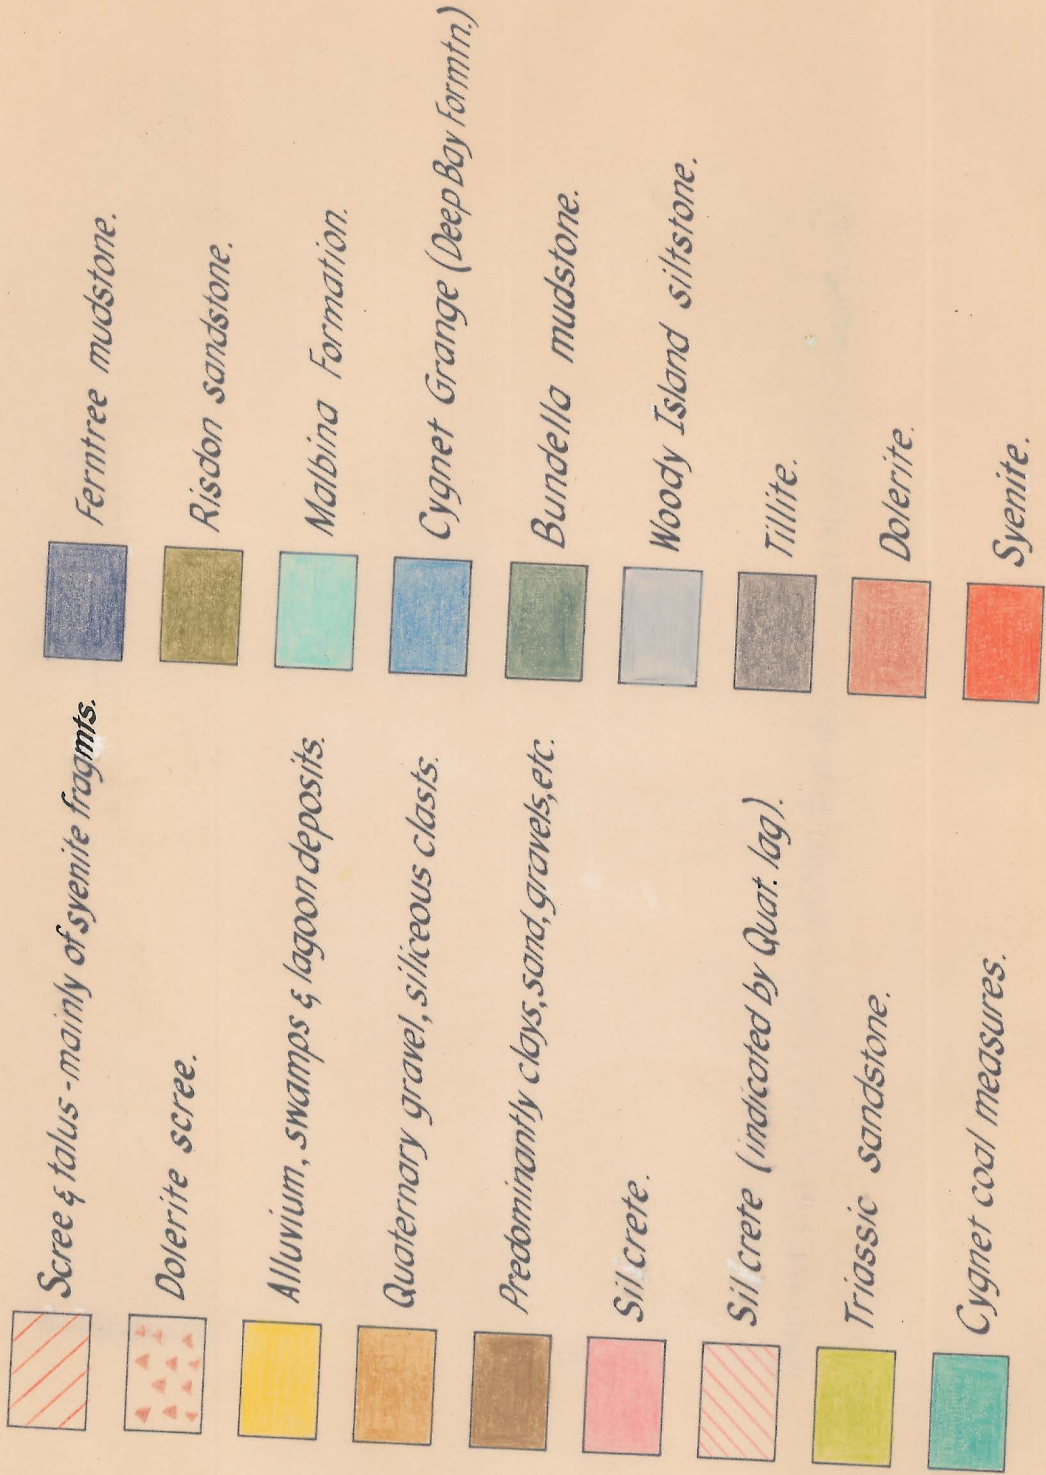 Scree & talus - mainly of syenite fragmts.
Dolerite scree.
Alluvium, swamps & lagoon deposits.
Quaternary gravel, siliceous clasts.
Predominantly clays, sand, gravels, etc.
Silcrete.
Silcrete (indicated by Quat. lag).
Triassic sandstone.
Cygnet coal measures.
Ferntree mudstone.
Risdon sandstone.
Malbina Formation.
Cygnet Grange (Deep Bay Formtn.)
Bundella mudstone.
Woody Island siltstone.
Tillite.
Dolerite.
Syenite.